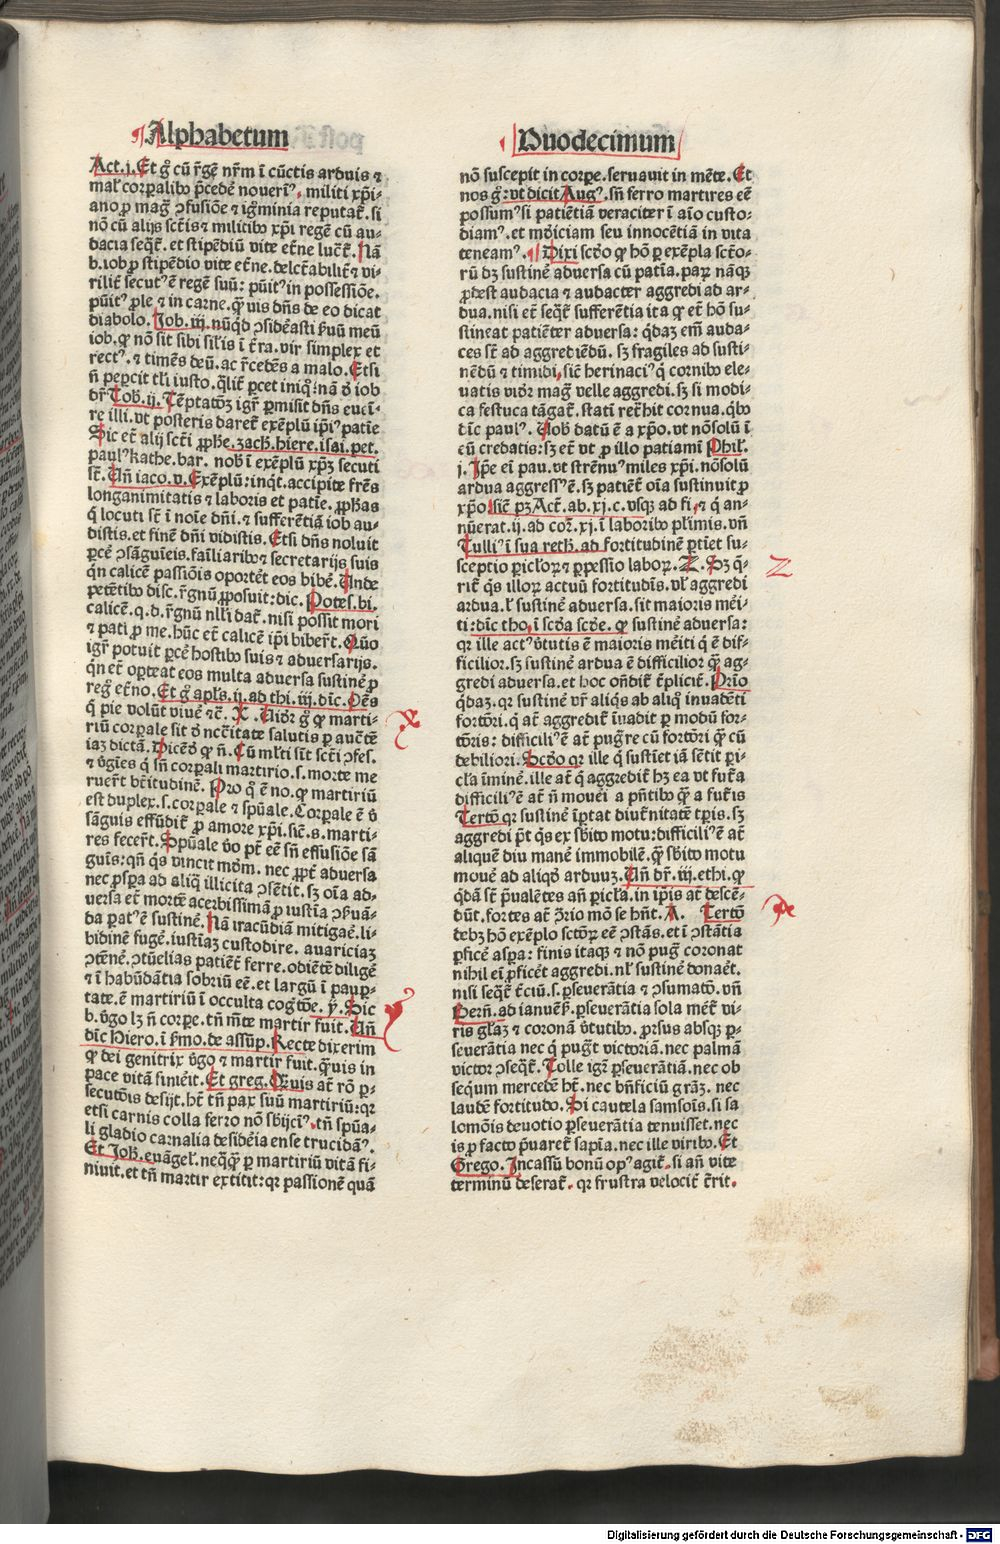 Alphabetum
Act.j. Et g̊ cū r̄gē nr̄m ī cūctis arduis ⁊
malꝭ corꝑalibꝰ p̄cedē noverīꝰ. militi xp̄i-
ano ꝓ mag̃ ꝯfusiōe ⁊ ig̃minia reputat̃. si
nō cū alijs sct̃is ⁊ militibꝰ xp̄i regē cū au-
dacia seqt̃. et stipēdiū vite et̃ne luct̃. Nā
b. iob ꝓ stipendio vite et̃ne. delct̃abilit̃ ⁊ vi-
rilit̃ secutꝰ ē regē suū: pūitꝰ in possessiōe.
pūitꝰ ꝓle ⁊ in carne. qͣvis dn̄s de eo dicat
diabolo. Iob. iij. nūqd ꝯsideasti ẜuū meū
iob. ꝙ nō sit sibi silis ī t̃ra. vir simplex et
rectꝰ. ⁊ timēs deū. ac r̄cedēs a malo. Etsi
n̄ peꝑcit tli iusto. qlit̃ ꝑcet iniqꝭ: nā ꝺ iob
dr̄ Tob. ij. Tēptatoꝫ igr̃ ꝑmisit dn̄s euēi-
re illi. vt posteris daret̃ exēplū ip̄iꝰ patīe
Sic et̃ alij sct̃i ꝓph̄e. zach. hiere. isai. pet.
paulꝰ kathe. bar. nob ī exēplū xp̄ꝫ secuti
st̃. Un̄ iaco. v. Exēplū: inqt. accipite fr̄es
longanimitatis ⁊ laboris et patīe. ꝓphas
q̇ locuti st̃ ī noīe dn̄i. ⁊ sufferētiā iob au-
distis. et finē dn̄i vidistis. Etsi dn̄s noluit
ꝑcē ꝯsāguieis. failiaribꝰ ⁊ secretarijs suis
qn̄ calicē passiōis oportēt eos bibē. Unde
petētibꝰ disc. r̄gnū ꝓposuit: dic. Potes. bi.
calicē. q.d. r̄gnū nlli dat̃. nisi possit mori
⁊ pati ꝓ me. hūc et̃ calicē ip̄i biber̃t. Quo
igr̃ potuit ꝑcē hostibꝰ suis ⁊ adversarijs.
qn̄ et̃ oꝑteat eos multa adversa sustinē ꝓ
reg̃ et̃no. Et g̊ apls. ij. ad thi. iij. dic. Oēs
q̇ pie volūt vivē ⁊c̃. X. Uidr̃ g̊ ꝙ marti-
riū corꝑale sit ꝺ ncc̄itate salutis ꝑ auctē
iaꝫ dictā. Dicēꝺ ꝙ n̄. Cū mlti sūt sct̃i ꝯfes.
⁊ v̄gīes q̇ sn̄ corꝑali martirio. s. morte me
ruer̃t bt̃itudinē. Pro q̊ ē no. ꝙ martiriū
est duplex. s. corꝑale ⁊ sp̄uale. Corꝑale ē ꝺ
sāguis effūdit̃ ꝓ amore xp̄i. sic̄. s. marti-
res fecer̃t. Spūale v̊o pt̃ eē sn̄ effusiōe sā
guis: qn̄ qs vincit mdm. nec ꝓpt̃ adversa
nec ꝓspa ad aliq̊ illicita ꝯsētit. sꝫ oīa ad-
versa et̃ mortē acerbissimā ꝓ iustīa ꝯẜuā-
da patꝰ ē sustinē. Nā iracūdiā mitigaē. li-
bidinē fugē. iustīaꝫ custodire. avariciaꝫ
ꝯtēnē. ꝯtūelias patiēt̃ ferre. obiētē diligē
⁊ ī habūdātia sobriū eē. et largū ī pauꝑ-
tate. ē martiriū ī occulta cogtōe. y. Sic
b. v̊go lꝫ n̄ corꝑe. tn̄ mēte martir fuit. Un̄
dic̄ Hiero. ī ẜmo. de assūp. Recte dixerim
ꝙ dei genitrix v̊go ⁊ martir fuit. qͣvis in
pace vitā finieit. Et greg. Qͣuis at̃ rō ꝑ-
secutōis desijt. ht̃ tn̄ pax suū martiriū: qꝛ
etsi carnis colla ferro nō s̄bijciꝰ. tn̄ spūa-
li gladio carnalia desideia ense trucidāꝰ.
Et Joh. evāgel. neq̄qͣ ꝑ martiriū vitā fi-
nivit. et tn̄ martir extitit: qꝛ passionē quā
Duodecimum
nō suscepit in corꝑe. servavit in mēte. Et
nos g̊: vt dicit Augꝰ. sn̄ ferro martires eē
possumꝰ si patiētiā veraciter ī aīo custo-
diamꝰ. et mūiciam seu innocētiā in vita
teneamꝰ. Dixi scd̊o ꝙ hō ꝑ exēpla sct̃o-
rū dꝫ sustinē adversa cū patīa. paꝝ nāqꝫ
ꝓdest audacia ⁊ audacter aggredi ad ar-
dua. nisi et̃ seqt̃ sufferētia ita ꝙ et̃ hō su-
stineat patiēter adversa: q̇daꝫ em̄ auda-
ces st̃ ad aggrediēdū. sꝫ fragiles ad susti-
nēdū ⁊ timidi, sic̄ herinaciꝰ q̇ cornibꝰ ele-
vatis vidr̃ mag̃ velle aggredi. sꝫ si modi-
ca festuca tāgat̃. stati ret̃hit cornua. qbꝰ
dic̄ paulꝰ. Vob datū ē a xp̄o. vt nōsolū ī
eū credatis: sꝫ et̃ vt ꝓ illo patiami Phil.
j. Ip̄e ei pau. vt strēnuꝰ miles xp̄i. nōsolū
ardua aggressꝰ ē. sꝫ patiēt̃ oīa sustinuit ꝓ
xp̄o. sic̄ pꝫ Act̃. ab. xj. c. vsqꝫ ad fi. ⁊ q̊ an-
nūerat. ij. ad cor̃. xj. ī laboribꝰ plimis. vn̄
Tulliꝰ ī sua reth. ad fortitudinē ꝑtiet su-
sceptio ꝑicloꝝ ⁊ ꝑpessio laboꝝ. Z. Sꝫ q̄-
rit̃ qs illoꝝ actuū fortitudis. vl aggredi
ardua. l sustinē adversa. sit maioris mēi-
ti: dic̄ tho. ī scd̊a scd̊e. ꝙ sustinē adversa:
qꝛ ille actꝰ v̊tutis ē maioris mēiti q̇ ē dif-
ficilior. sꝫ sustinē ardua ē difficilior qͣ ag-
gredi adversa. et hoc on̄dit̃ t̃plicit̃. Prīo
q̇daꝫ. qꝛ sustinē vr̃ aliqs ab aliq̊ invadēti
fortori. q̇ at̃ aggredit̃ īvadit ꝑ modū for-
tōris: difficiliꝰ ē at̃ pugre cū fortōri qͣ cū
debiliori. Scd̊o qꝛ ille q̇ sustiet iā sētit ꝑi-
cla īminē. ille at̃ q̇ aggredit̃ hꝫ ea vt fut̃a
difficiliꝰ ē at̃ n̄ movei a pn̄tibꝰ qͣ a fut̃is
Tertō qꝛ sustinē īꝑtat diut̃nitatē tꝑis. sꝫ
aggredi pt̃ qs ex sb̄ito motu: difficiliꝰ ē at̃
aliquē diu manē immobilē. qͣ sb̄ito motu
movē ad aliqꝺ arduuꝫ. Un̄ dr̃. iij. ethi. ꝙ
q̇dā st̃ p̄valētes an̄ ꝑicla. in ip̄is at̃ descē-
dūt. fortes at̃ ꝯ̄rio mō se hn̄t. A. Tertō
debꝫ hō exēplo sctōꝝ eē ꝯstās. et ī ꝯstātia
ꝑficē aspa: finis itaqꝫ ⁊ nō pug̃ coronat
nihil ei ꝓficēt aggredi. nl sustinē donaēt.
nisi seqt̃ t̃ciū. s. ꝑseverātia ⁊ ꝯsumatō. vn̄
Bern̄. ad ianuēs. ꝑseverātia sola meret̃ vi-
ris gliaꝫ ⁊ coronā v̊tutibꝰ. ꝓrsus absqꝫ ꝑ-
severātia nec q̇ pugt victoriā. nec palmā
victor ꝯseqt̃. Tolle igr̃ ꝑseverātiā. nec ob
seqꝫm mercedē ht̃. nec bn̄ficiū grāꝫ. nec
laudē fortitudo. Si cautela samsōis. si sa
lomōis devotio ꝑseverātia tenuisset. nec
is ꝑ facto p̄varet̃ sapīa. nec ille viribꝰ. Et
Grego. Incassū bonū opꝰ agit̃. si an̄ vite
terminū deserat̃. qꝛ frustra velocit̃ c̃rit.
Z
Digitalisierung gefördert durch die Deutsche Forschungsgemeinschaft - DFG